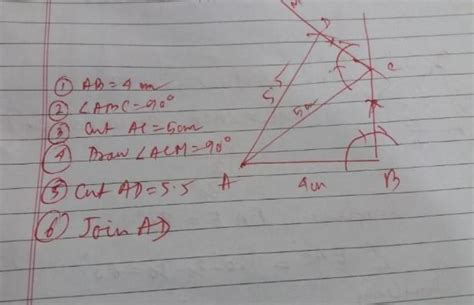 ① AB = 4 cm
② ∠ABC = 90°
③ Cut AC = 5cm
④ Draw ∠ACM = 90°
⑤ Cut AD = 5.5
⑥ Join AD
M
D
C
5.5
5cm
A
4cm
B